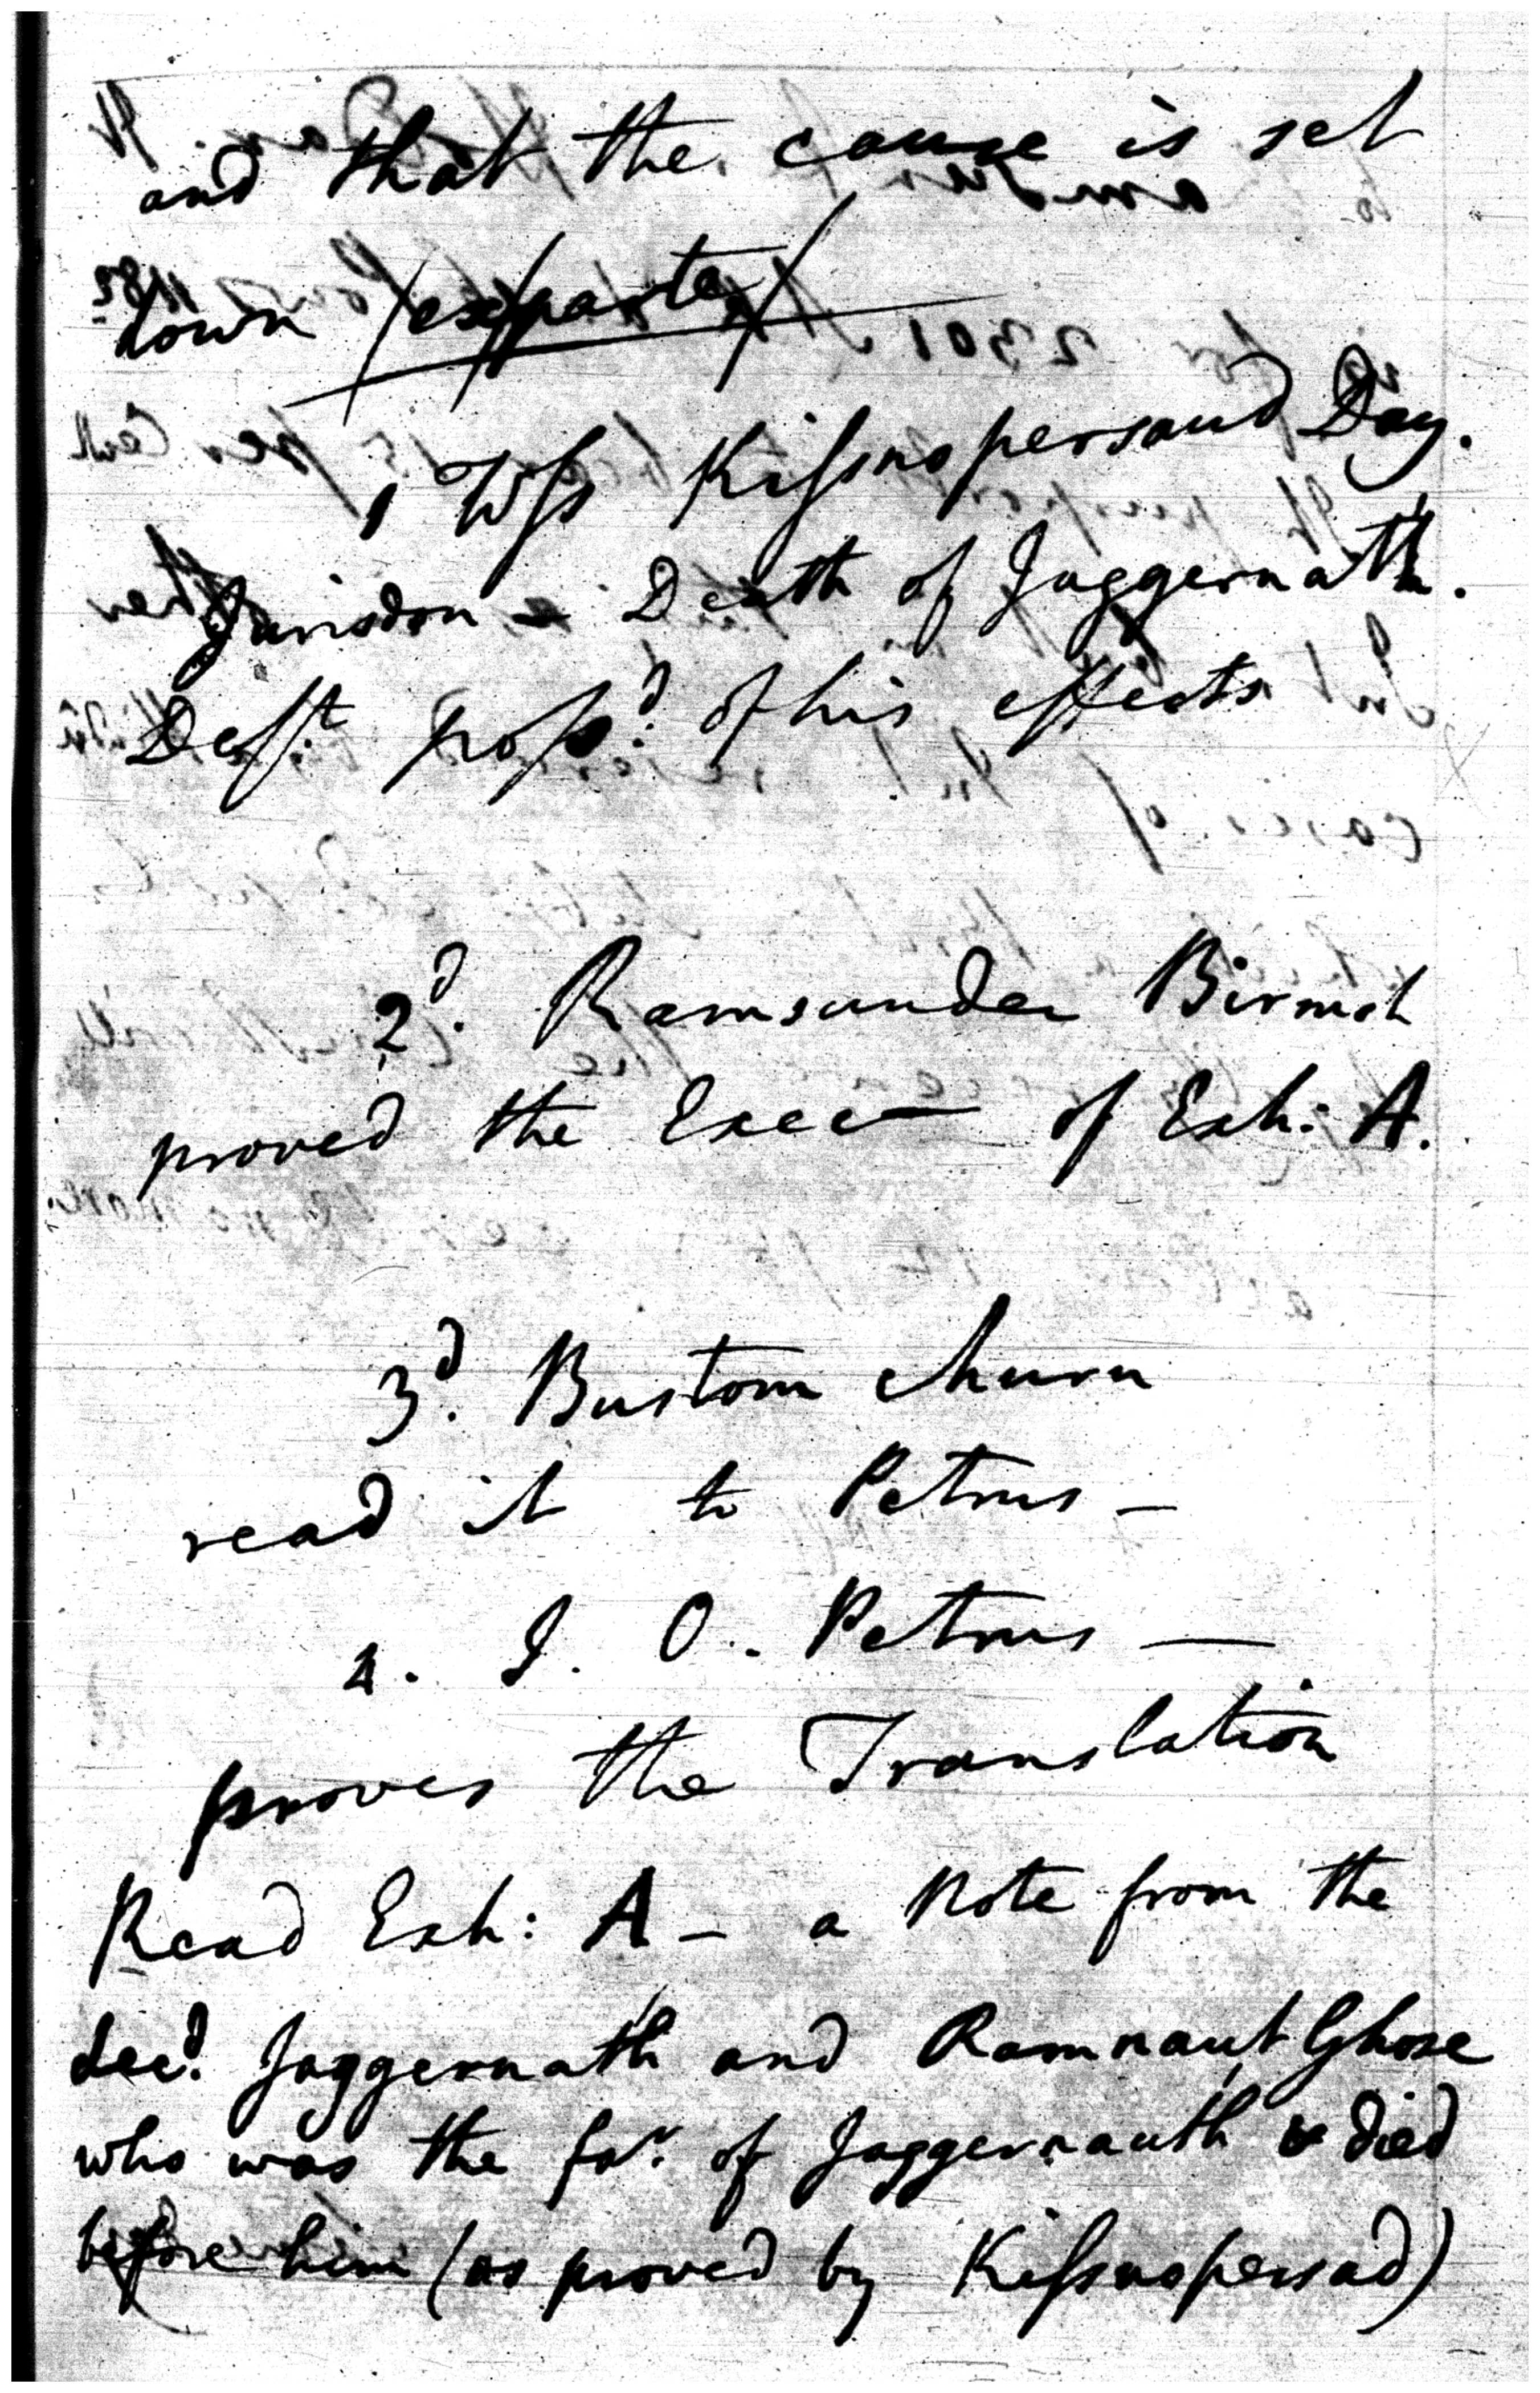 and that the cause is set
down /exparte/
1 Wss Kissnopersaud Day.
Jurisdon - Death of Jaggernath.
Deft possd. of his effects
2d. Ramsunder Birmsh
proved the Exec— of Exh: A.
3d. Bustom churn
read it to Petrus —
4. J. O. Petrus —
proves the Translation
Read Exh: A — a Note from the
decd. Jaggernath and Ramnaut Ghose
who was the far. of Jaggernauth & died
before him (as proved by Kissnopersad)